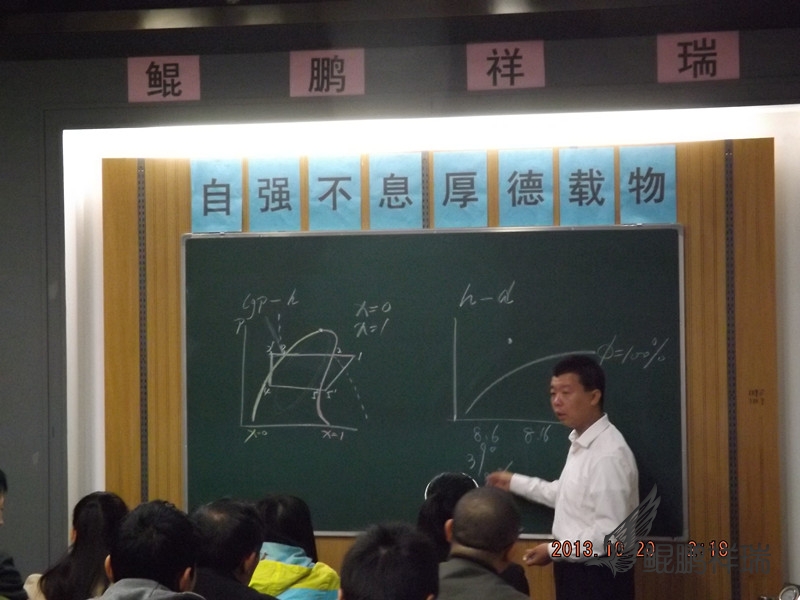 鲲 鹏 祥 瑞
自强不息厚德载物
lgp-h
h-d
x=0
x=1
P
1
φ=100%
x=0
x=1
8.6
8.16
3
2013.10.20
鲲鹏祥瑞